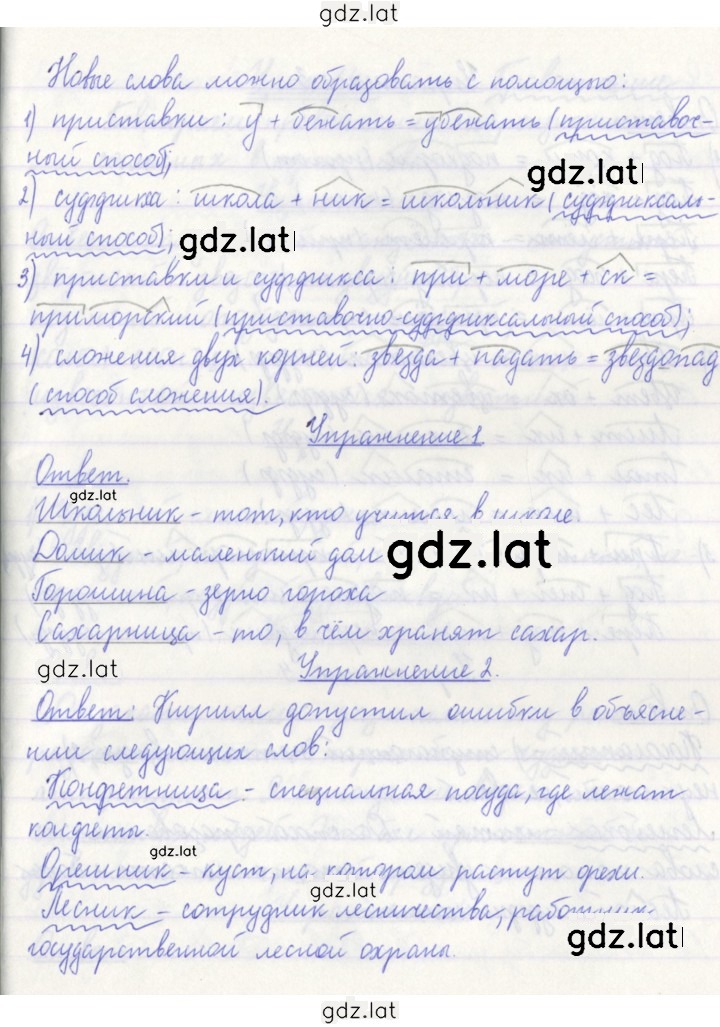 gdz.lat
Новые слова можно образовать с помощью:
1) приставки: у + бежать = убежать (приставоч-
ный способ);
gdz.lat
2) суффикса: школа + ник = школьник (суффиксаль-
ный способ);
gdz.lat
3) приставки и суффикса: при + море + ск =
приморский (приставочно-суффиксальный способ);
4) сложения двух корней: звезда + падать = звездопад
(способ сложения).
Упражнение 1
Ответ.
gdz.lat
Школьник - тот, кто учится в школе.
Домик - маленький дом
gdz.lat
Горошина - зерно гороха
Сахарница - то, в чём хранят сахар.
gdz.lat
Упражнение 2.
Ответ: Кирилл допустил ошибки в объясне-
нии следующих слов:
Конфетница - специальная посуда, где лежат
конфеты.
gdz.lat
Орешник - куст, на котором растут орехи.
gdz.lat
Лесник - сотрудник лесничества, работник
gdz.lat
государственной лесной охраны.
gdz.lat